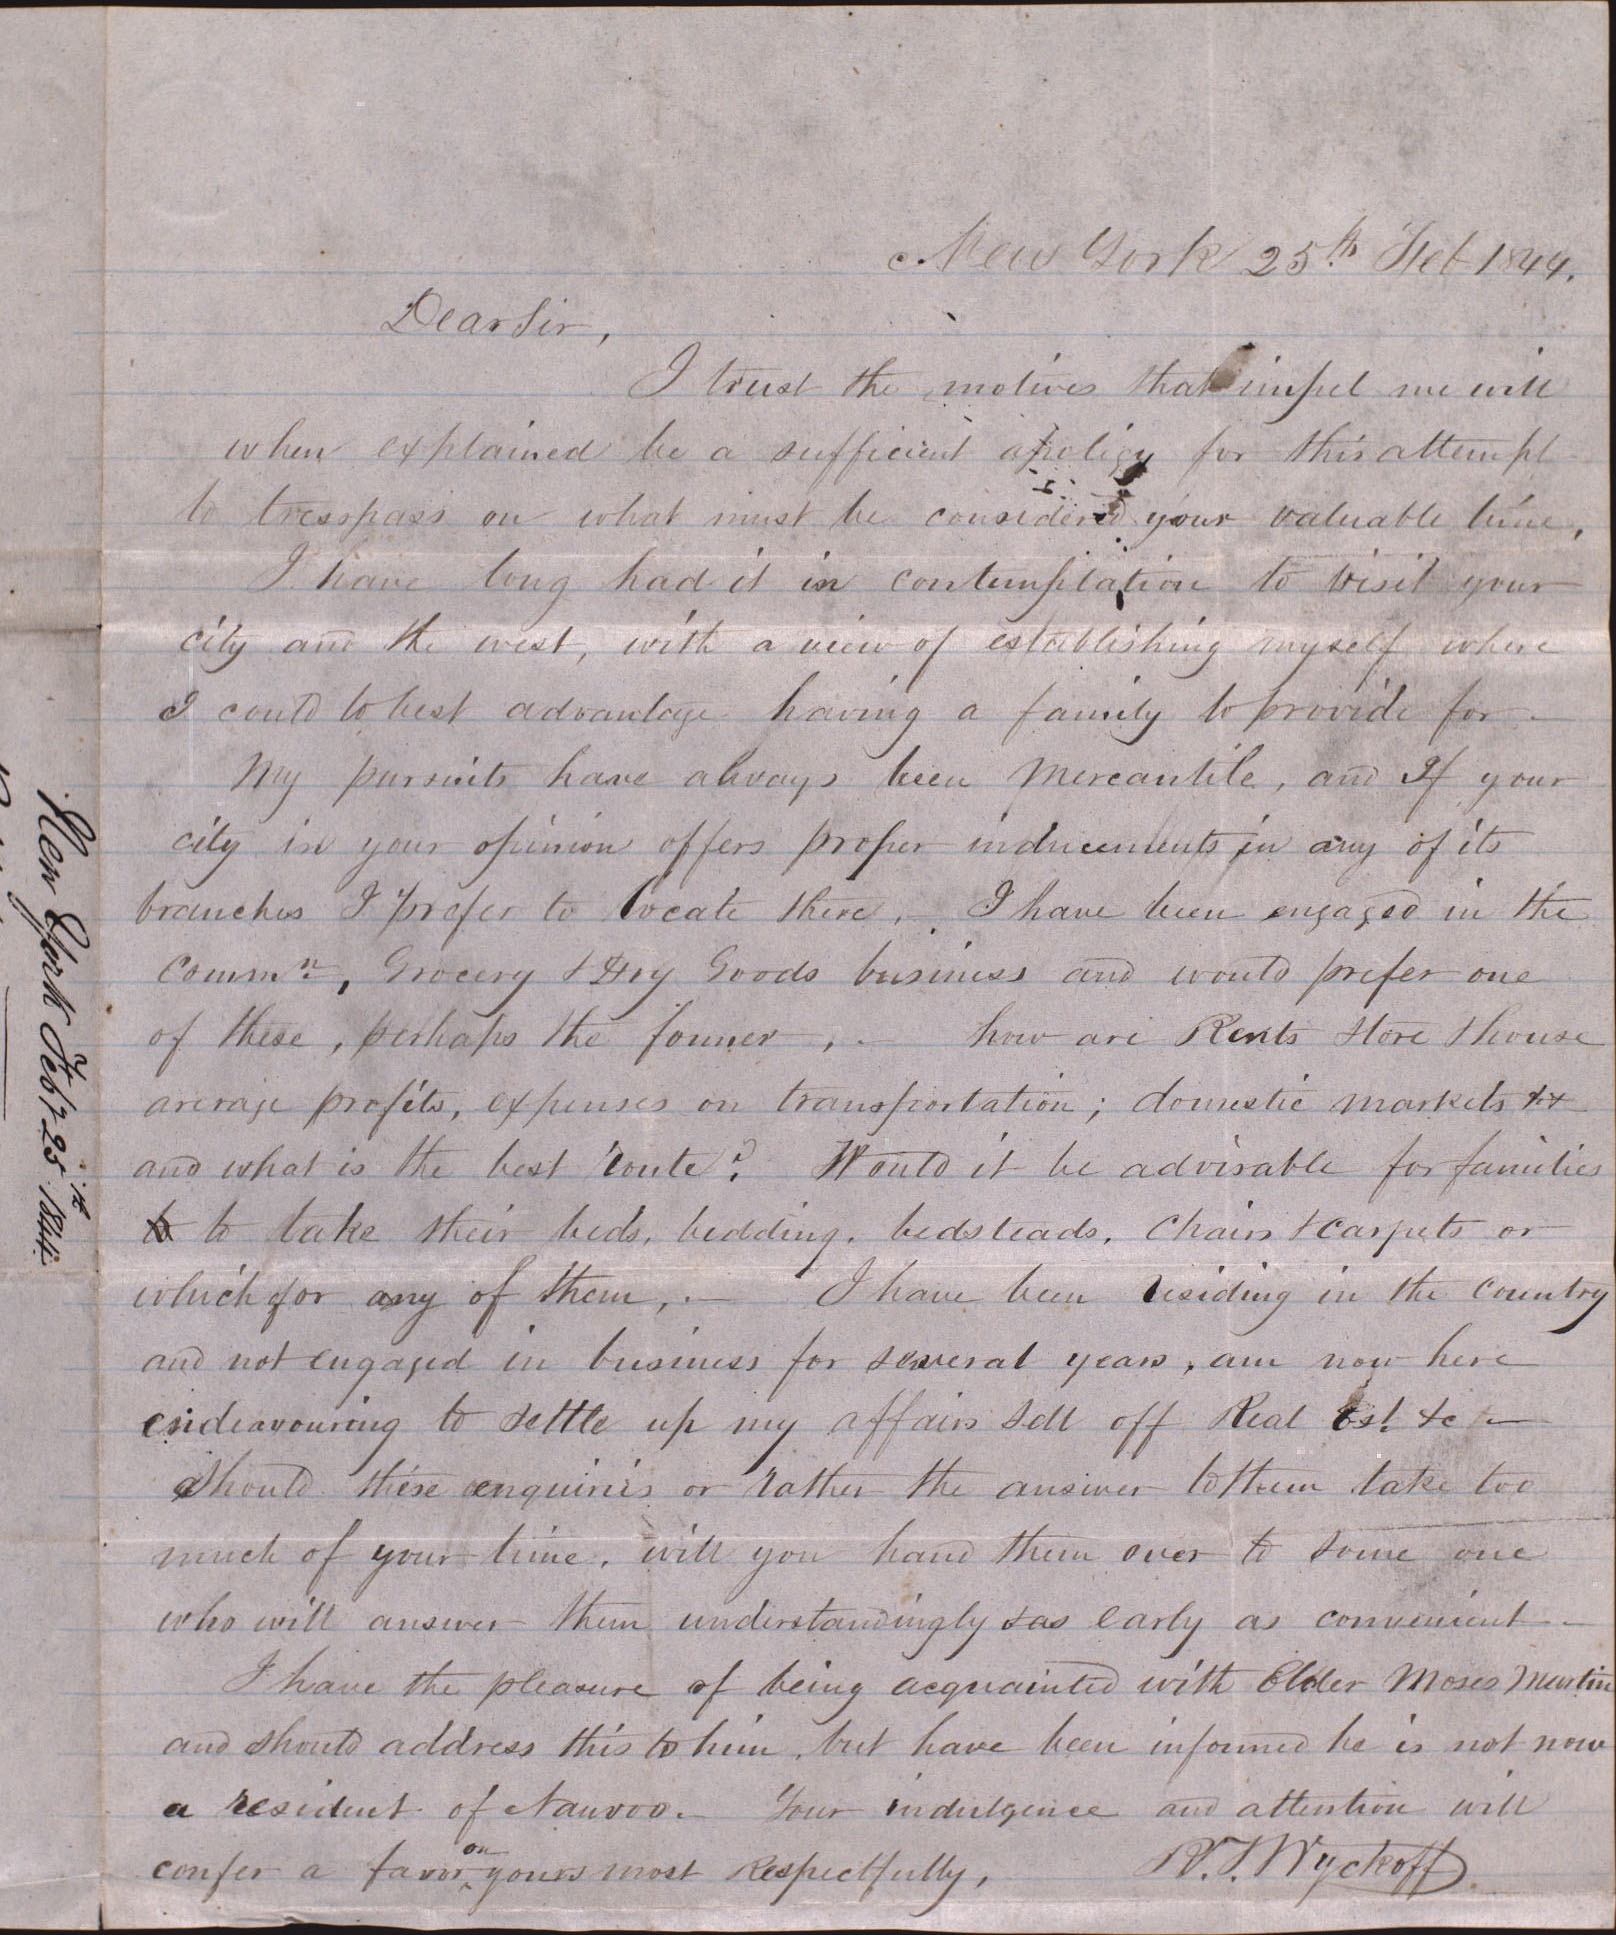 New York 25th. Feb 1844.
Dear Sir,
I trust the motives that impel me will
when explained be a sufficient apoligy for this attempt
to tresspass on what must be considered your valuable time.
I have long had it in contemplation to visit your
city and the west, with a view of establishing myself where
I could to best advantage having a family to provide for -
My pursuits have always been Mercantile, and If your
city in your opinion offers proper inducements in any of its
branches I prefer to locate there. I have been engaged in the
Commn, Grocery & Dry Goods business and would prefer one
of these, perhaps the former, . - how are Rents store & house
average profits, expenses on transportation; domestic markets &c
and what is the best route? Would it be advisable for families
to to take their beds, bedding, bedsteads, Chairs & carpets or
which or any of them, . - I have been residing in the Country
and not engaged in business for several years, am now here
endeavouring to settle up my affairs sell off Real Est. &c -
Should these enquiries or rather the answer to them take too
much of your time, will you hand them over to some one
who will answer them understandingly & as early as convenient -
I have the pleasure of being acquainted with Elder Moses Martin
and should address this to him, but have been informed he is not now
a resident of Nauvoo. - Your indulgence and attention will
confer a favor on yours most Respectfully, R. T. Wyckoff
New York Feby 25th 1844